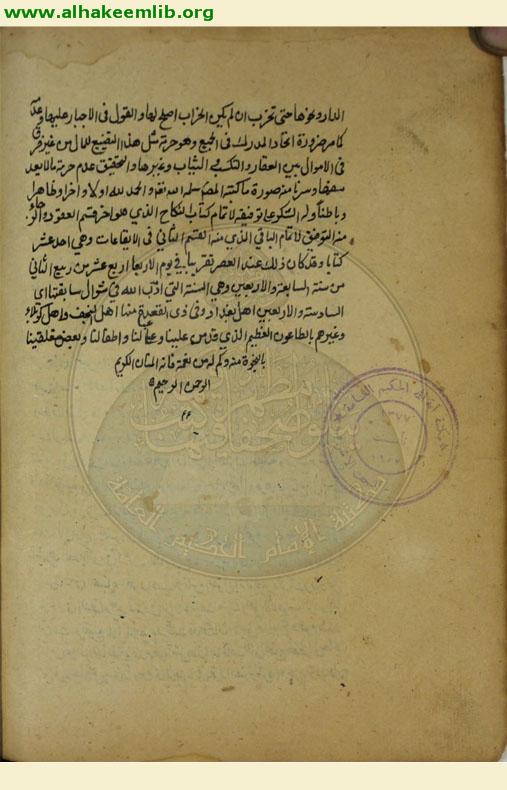 www.alhakeemlib.org
الدار ونحوها حتى تخرب ان لم يكن الخراب اصلح لها والقول في الاجبار عليها وعدمه
كما مر ضرورة اتحاد المدرك في الجميع وهو حرمة مثل هذا التضييع للمال من غير فرق
في الاموال بين العقار والثياب وغيرها والتحقيق عدم حرمة
صورة ما كتبه المصنف سلمه الله تعالى والحمد لله اولا واخرا وظاهرا
وباطنا وله الشكر على توفيقه لاتمام كتاب النكاح الذي هو اخر قسم العقود وارجو
منه التوفيق لاتمام الباقي الذي منه القسم الثاني في الايقاعات وهي احد عشر
كتابا وقد كان ذلك عند العصر تقريبا في يوم الاربعا اربع عشر من ربيع الثاني
من سنة السابعة والاربعين وهي السنة التي ادب الله في شوال سابقتها اي
السادسة والاربعين اهل بغداد وفي ذي القعدة منها اهل النجف واهل كربلا
وغيرهم بالطاعون العظيم الذي قد من علينا وعيالنا واطفالنا وبعض متعلقينا
بالنجوة منه وكم له من نعمة فانه المنان الكريم
الرحمن الرحيم
مكتبة الإمام الحكيم العامة